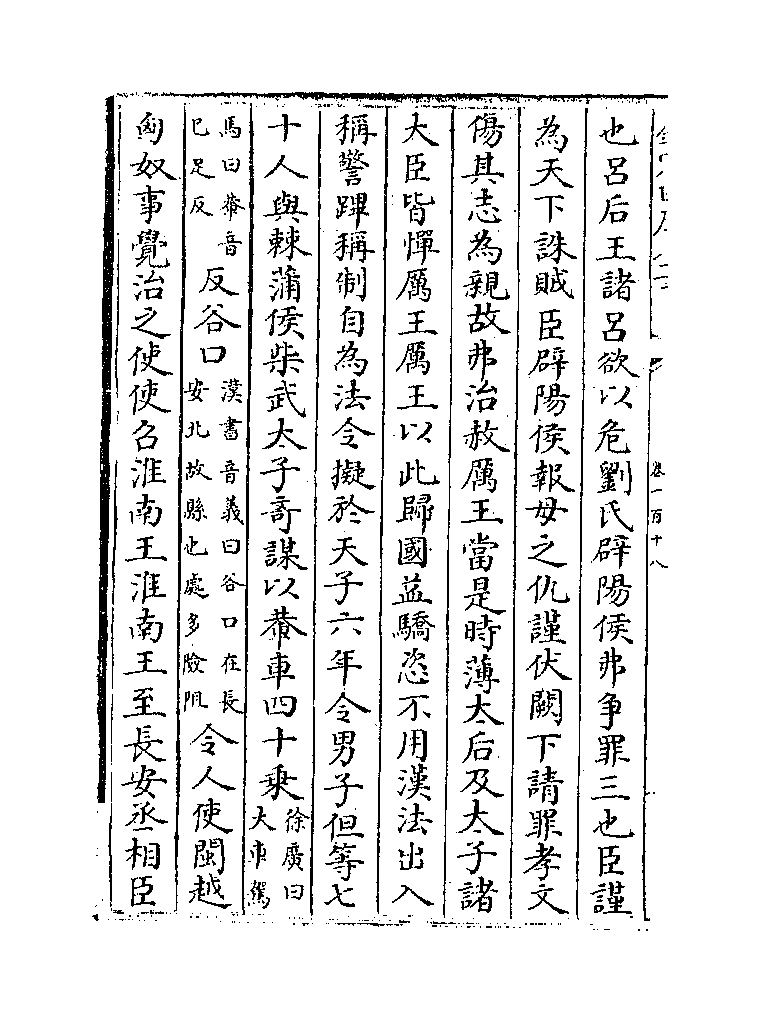 卷一百十八
也呂后王諸呂欲以危劉氏辟陽侯弗争罪三也臣謹
為天下誅賊臣辟陽侯報母之仇謹伏闕下請罪孝文
傷其志為親故弗治赦厲王當是時薄太后及太子諸
大臣皆憚厲王厲王以此歸國益驕恣不用漢法出入
稱警蹕稱制自為法令擬於天子六年令男子但等七
十人與棘蒲侯柴武太子奇謀以輂車四十乘徐廣曰大車駕
馬曰輂音已足反反谷口漢書音義曰谷口在長安北故縣也處多險阻令人使閩越
匈奴事覺治之使使召淮南王淮南王至長安丞相臣